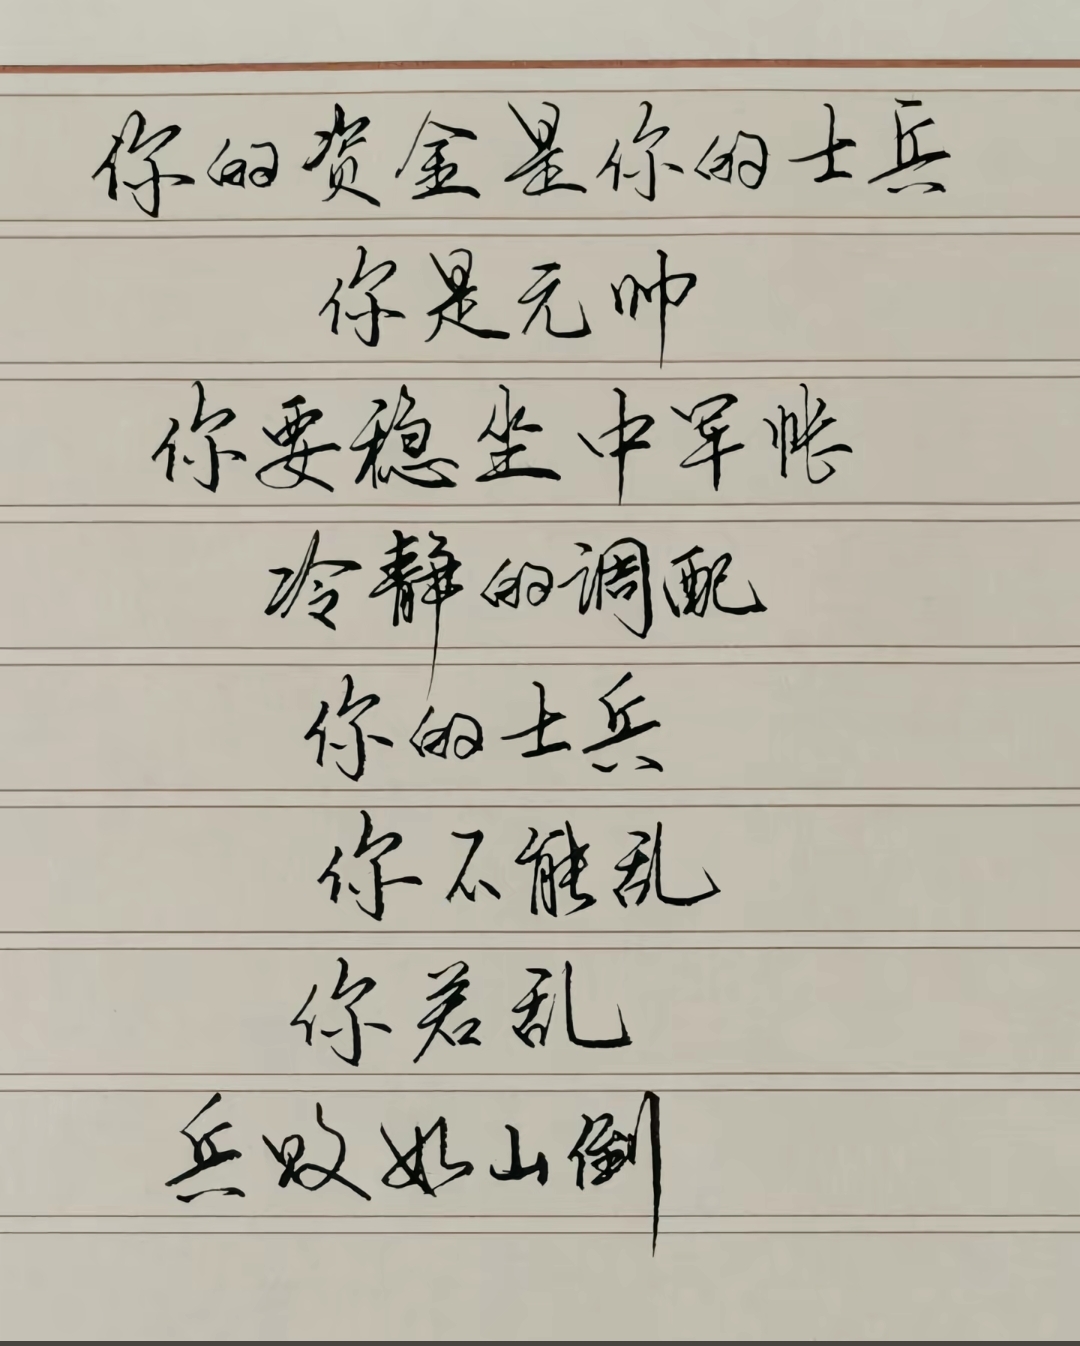 你的资金是你的士兵
你是元帅
你要稳坐中军帐
冷静的调配
你的士兵
你不能乱
你若乱
兵败如山倒